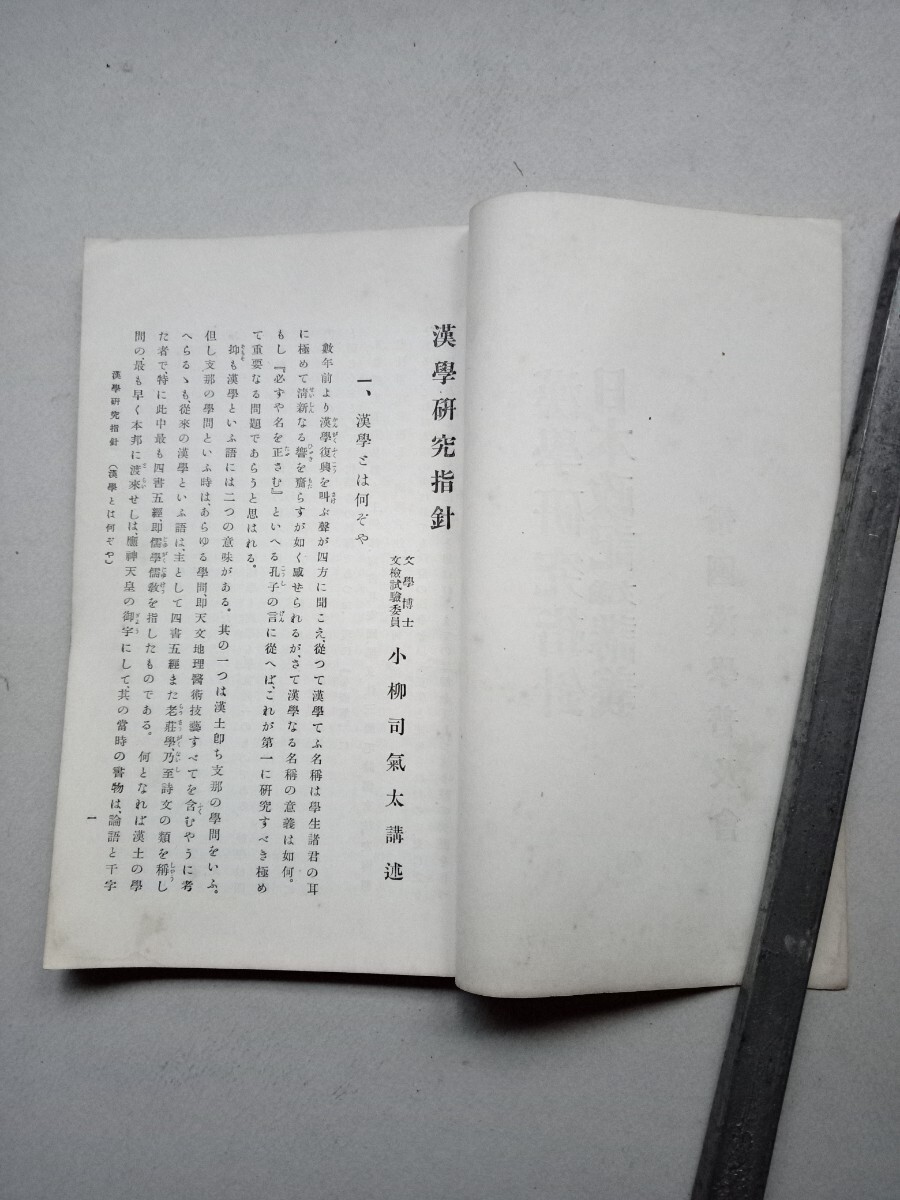 漢學硏究指針
文學博士
文檢試驗委員
小柳司氣太講述
一、漢學とは何ぞや
數年前より漢學復興を叫ぶ聲が四方に聞こえ、從つて漢學てふ名稱は學生諸君の耳
に極めて淸新なる響を齎らすが如く感せられるが、さて漢學なる名稱の意義は如何。
もし『必ずや名を正さむ』といへる孔子の言に從へば、これが第一に硏究すべき極め
て重要なる問題であらうと思はれる。
抑も漢學といふ語には二つの意味がある。其の一つは漢土卽ち支那の學問をいふ。
但し支那の學問といふ時は、あらゆる學問、卽天文地理醫術技藝すべてを含むやうに考
へらるゝも、從來の漢學といふ語は、主として四書五經また老莊學、乃至詩文の類を稱し
た者で、特に此中最も四書五經、卽儒學儒敎を指したものである。何となれば漢土の學
問の、最も早く本邦に渡來せしは、應神天皇の御宇にして、其の當時の書物は、論語と千字
漢學硏究指針（漢學とは何ぞや）
一